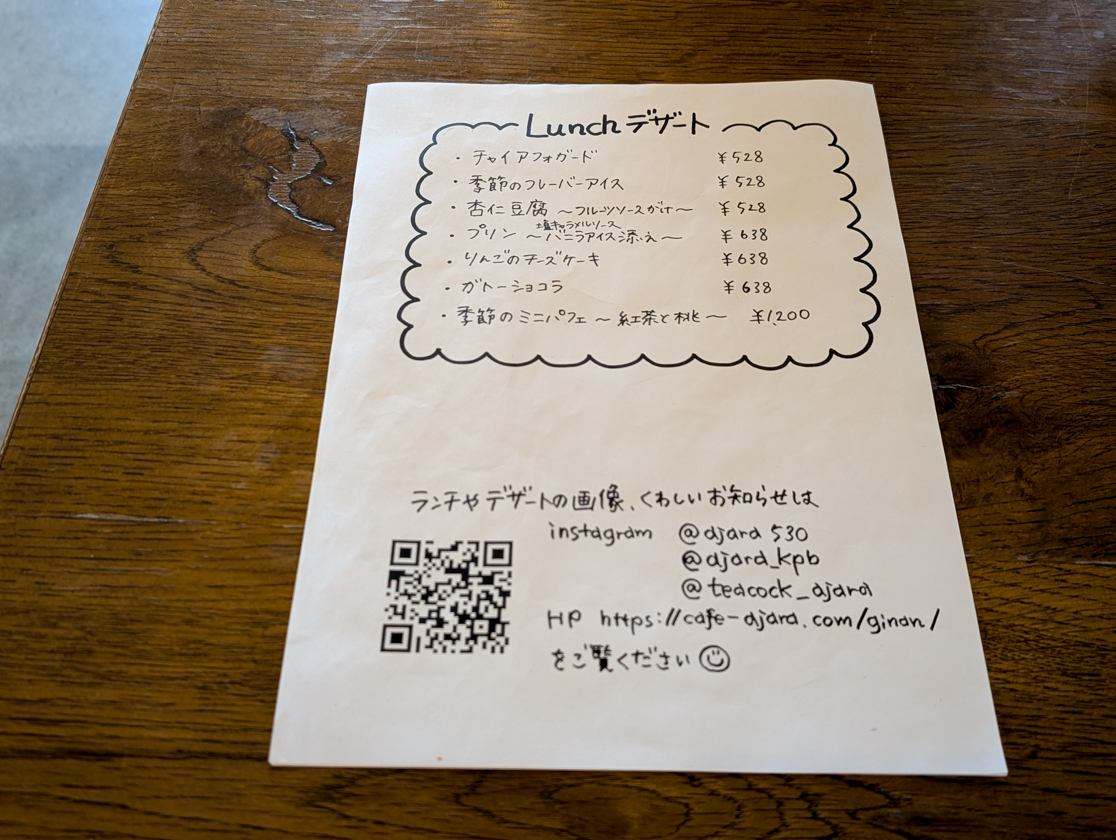 Lunch デザート
・チャイアフォガード ¥528
・季節のフレーバーアイス ¥528
・杏仁豆腐 〜フルーツソースがけ〜 ¥528
塩キャラメルソース
・プリン 〜バニラアイス添え〜 ¥638
・りんごのチーズケーキ ¥638
・ガトーショコラ ¥638
・季節のミニパフェ 〜紅茶と桃〜 ¥1,200
ランチやデザートの画像、くわしいお知らせは
instagram @ajara530
@ajara_kpb
@teacock_ajara
HP https://cafe-ajara.com/ginan/
をご覧ください